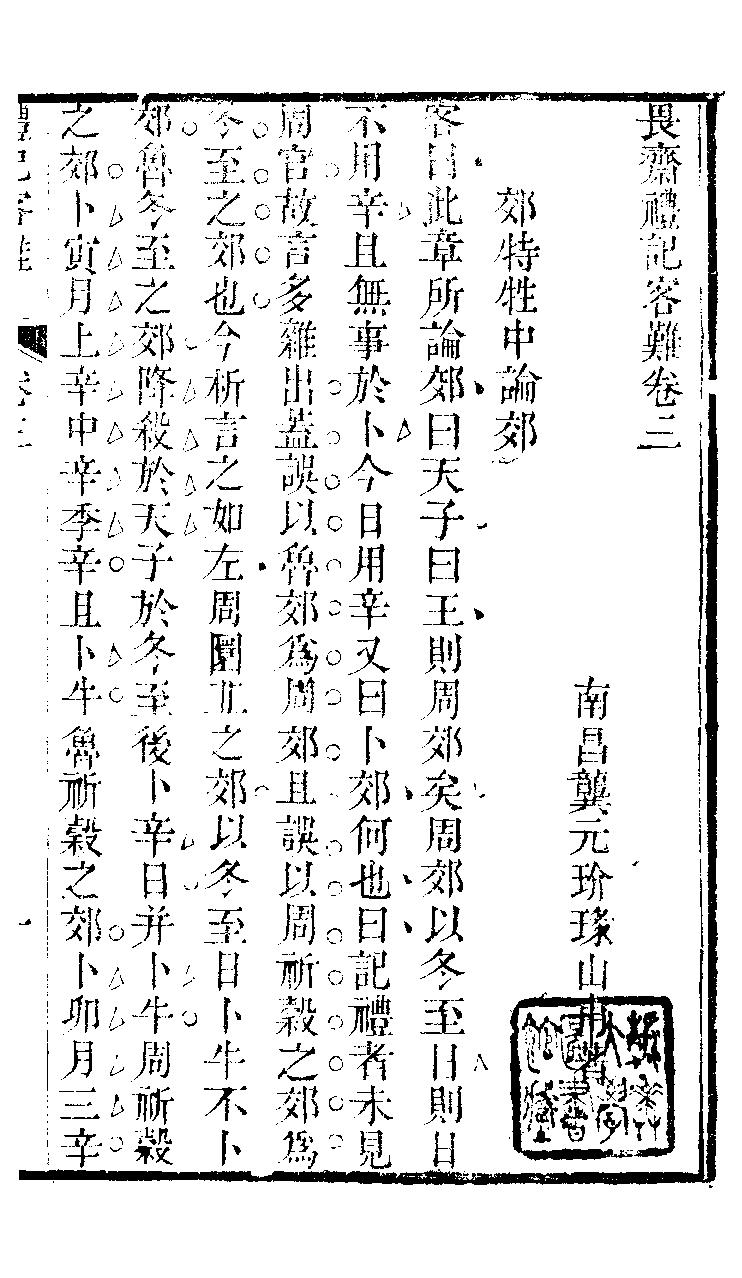 畏齋禮記客難卷三
南昌龔元玠瑑山甫著
郊特牲中論郊
客曰此章所論郊曰天子曰王則周郊矣周郊以冬至日則日
不用辛且無事於卜今日用辛又曰卜郊何也曰記禮者未見
周官故言多雜出蓋誤以魯郊爲周郊且誤以周祈穀之郊爲
冬至之郊也今析言之如左周圜丘之郊以冬至日卜牛不卜
郊魯冬至之郊降殺於天子於冬至後卜辛日并卜牛周祈穀
之郊卜寅月上辛中辛季辛且卜牛魯祈穀之郊卜卯月三辛
禮記客難 卷三 一